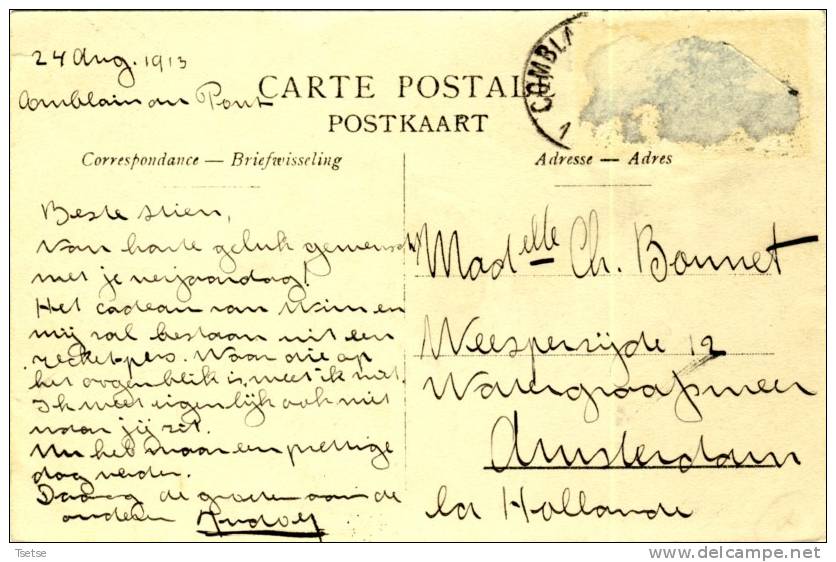 24 Aug. 1913
Comblain au Pont
CARTE POSTAL
POSTKAART
COMBLA
1
Correspondance — Briefwisseling
Adresse — Adres
Beste Stien,
Van harte geluk gewenscht
met je verjaardag!
Het cadeau van Wim en
mij zal bestaan uit een
racket-pers. Waar die op
het oogenblik is, weet ik niet.
Ik weet eigenlijk ook niet
waar jij zit.
Nu heb maar een prettige
dag verder.
Daaag de groeten aan de
anderen Rudolf
Madelle Ch. Bonnet
Weesperzijde 12
Watergraafsmeer
Amsterdam
la Hollande
Tsetse
delcampe.net